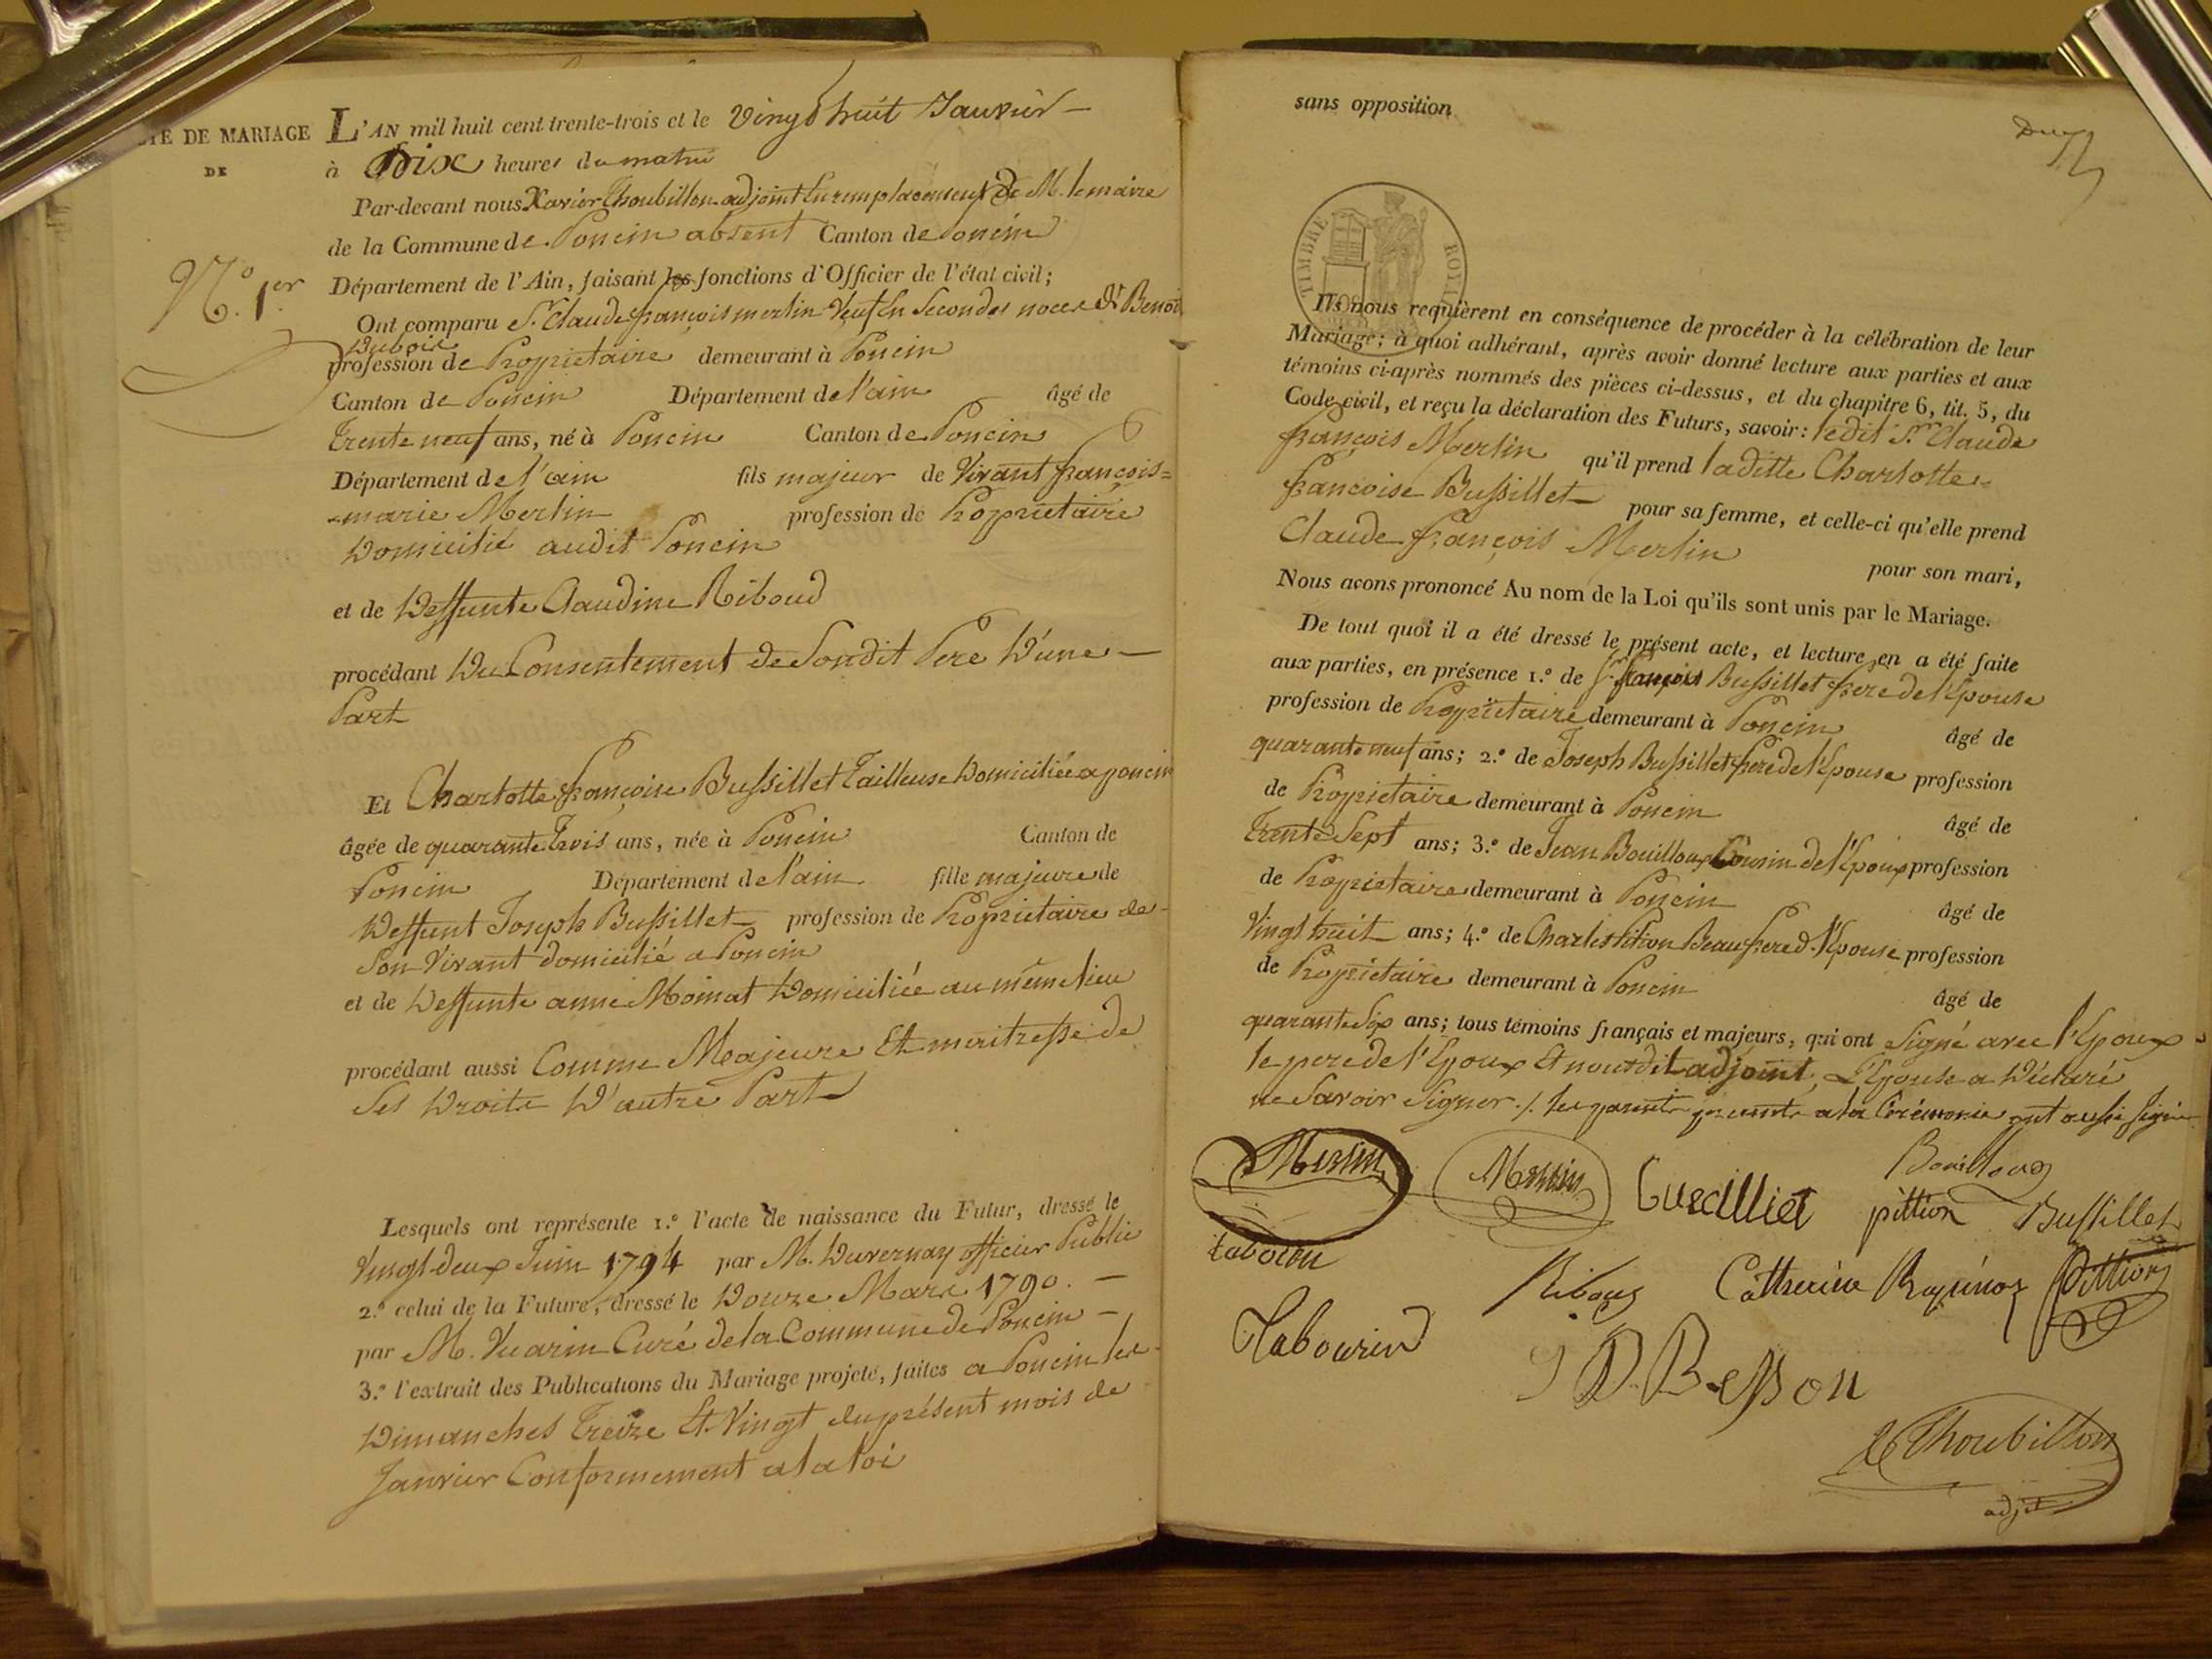 ACTE DE MARIAGE
DE
N.º 1.er
L'AN mil huit cent trente-trois et le vingt huit Janvier
à Dix heures du matin
Par-devant nous Xavier Choubillon adjoint En remplacement De M. le maire
de la Commune de Poncin absent Canton de Poncin
Département de l'Ain, faisant les fonctions d'Officier de l'état civil;
Ont comparu S.r Claude françois merlin Veuf En Secondes noces de Benoite
Dubois
profession de Propriétaire demeurant à Poncin
Canton de Poncin Département de l'ain âgé de
Trente neuf ans, né à Poncin Canton de Poncin
Département de l'ain fils majeur de Vivant françois=
=marie Merlin profession de Propriétaire
Domicilié audit Poncin
et de Deffunte Claudine Riboud
procédant Du Consentement de Sondit Pere D'une
Part
Et Charlotte françoise Bussillet Tailleuse Domiciliée a poncin
âgée de quarante Trois ans, née à Poncin Canton de
Poncin Département de l'ain fille majeure de
Deffunt Joseph Bussillet profession de Propriétaire de
Son Vivant domicilié a Poncin
et de Deffunte anne Moinat Domiciliée au même lieu
procédant aussi Comme Majeure Et maitresse de
Ses Droits D'autre Part
Lesquels ont représenté 1.º l'acte de naissance du Futur, dressé le
Vingt-deux Juin 1794 par M. Duvernay officier Public
2.º celui de la Future, dressé le Douze Mars 1790.
par M. Vuarin Curé de la Commune de Poncin
3.º l'extrait des Publications du Mariage projeté, faites a Poncin les
Dimanches Treize Et Vingt du présent mois de
Janvier Conformement a la loi
sans opposition
TIMBRE ROYAL
Ils nous requièrent en conséquence de procéder à la célébration de leur
Mariage; à quoi adhérant, après avoir donné lecture aux parties et aux
témoins ci-après nommés des pièces ci-dessus, et du chapitre 6, tit. 5, du
Code civil, et reçu la déclaration des Futurs, savoir: ledit S.r Claude
françois Merlin qu'il prend laditte Charlotte
françoise Bussillet pour sa femme, et celle-ci qu'elle prend
Claude françois Merlin pour son mari,
Nous avons prononcé Au nom de la Loi qu'ils sont unis par le Mariage.
De tout quoi il a été dressé le présent acte, et lecture en a été faite
aux parties, en présence 1.º de S.r françois Bussillet frere de l'Epouse
profession de Propriétaire demeurant à Poncin âgé de
quarante neuf ans; 2.º de Joseph Bussillet frere de l'Epouse profession
de Propriétaire demeurant à Poncin âgé de
Trente Sept ans; 3.º de Jean Bouilloux Cousin de l'Epoux profession
de Propriétaire demeurant à Poncin âgé de
Vingt huit ans; 4.º de Charles Pition Beau frere d. l'Epouse profession
de Propriétaire demeurant à Poncin âgé de
quarante Six ans; tous témoins français et majeurs, qui ont Signé avec l'Epoux
le pere de l'Epoux Et nousdit adjoint, L'Epouse a Déclaré
ne Savoir Signer ./. les parents présents a la Cérémonie ont aussi signé
Merlin Merlin Bouilloux
pittion Bussillet
Riboud Catherine Pittion
Tabourin
Besson
Choubillon
adjt